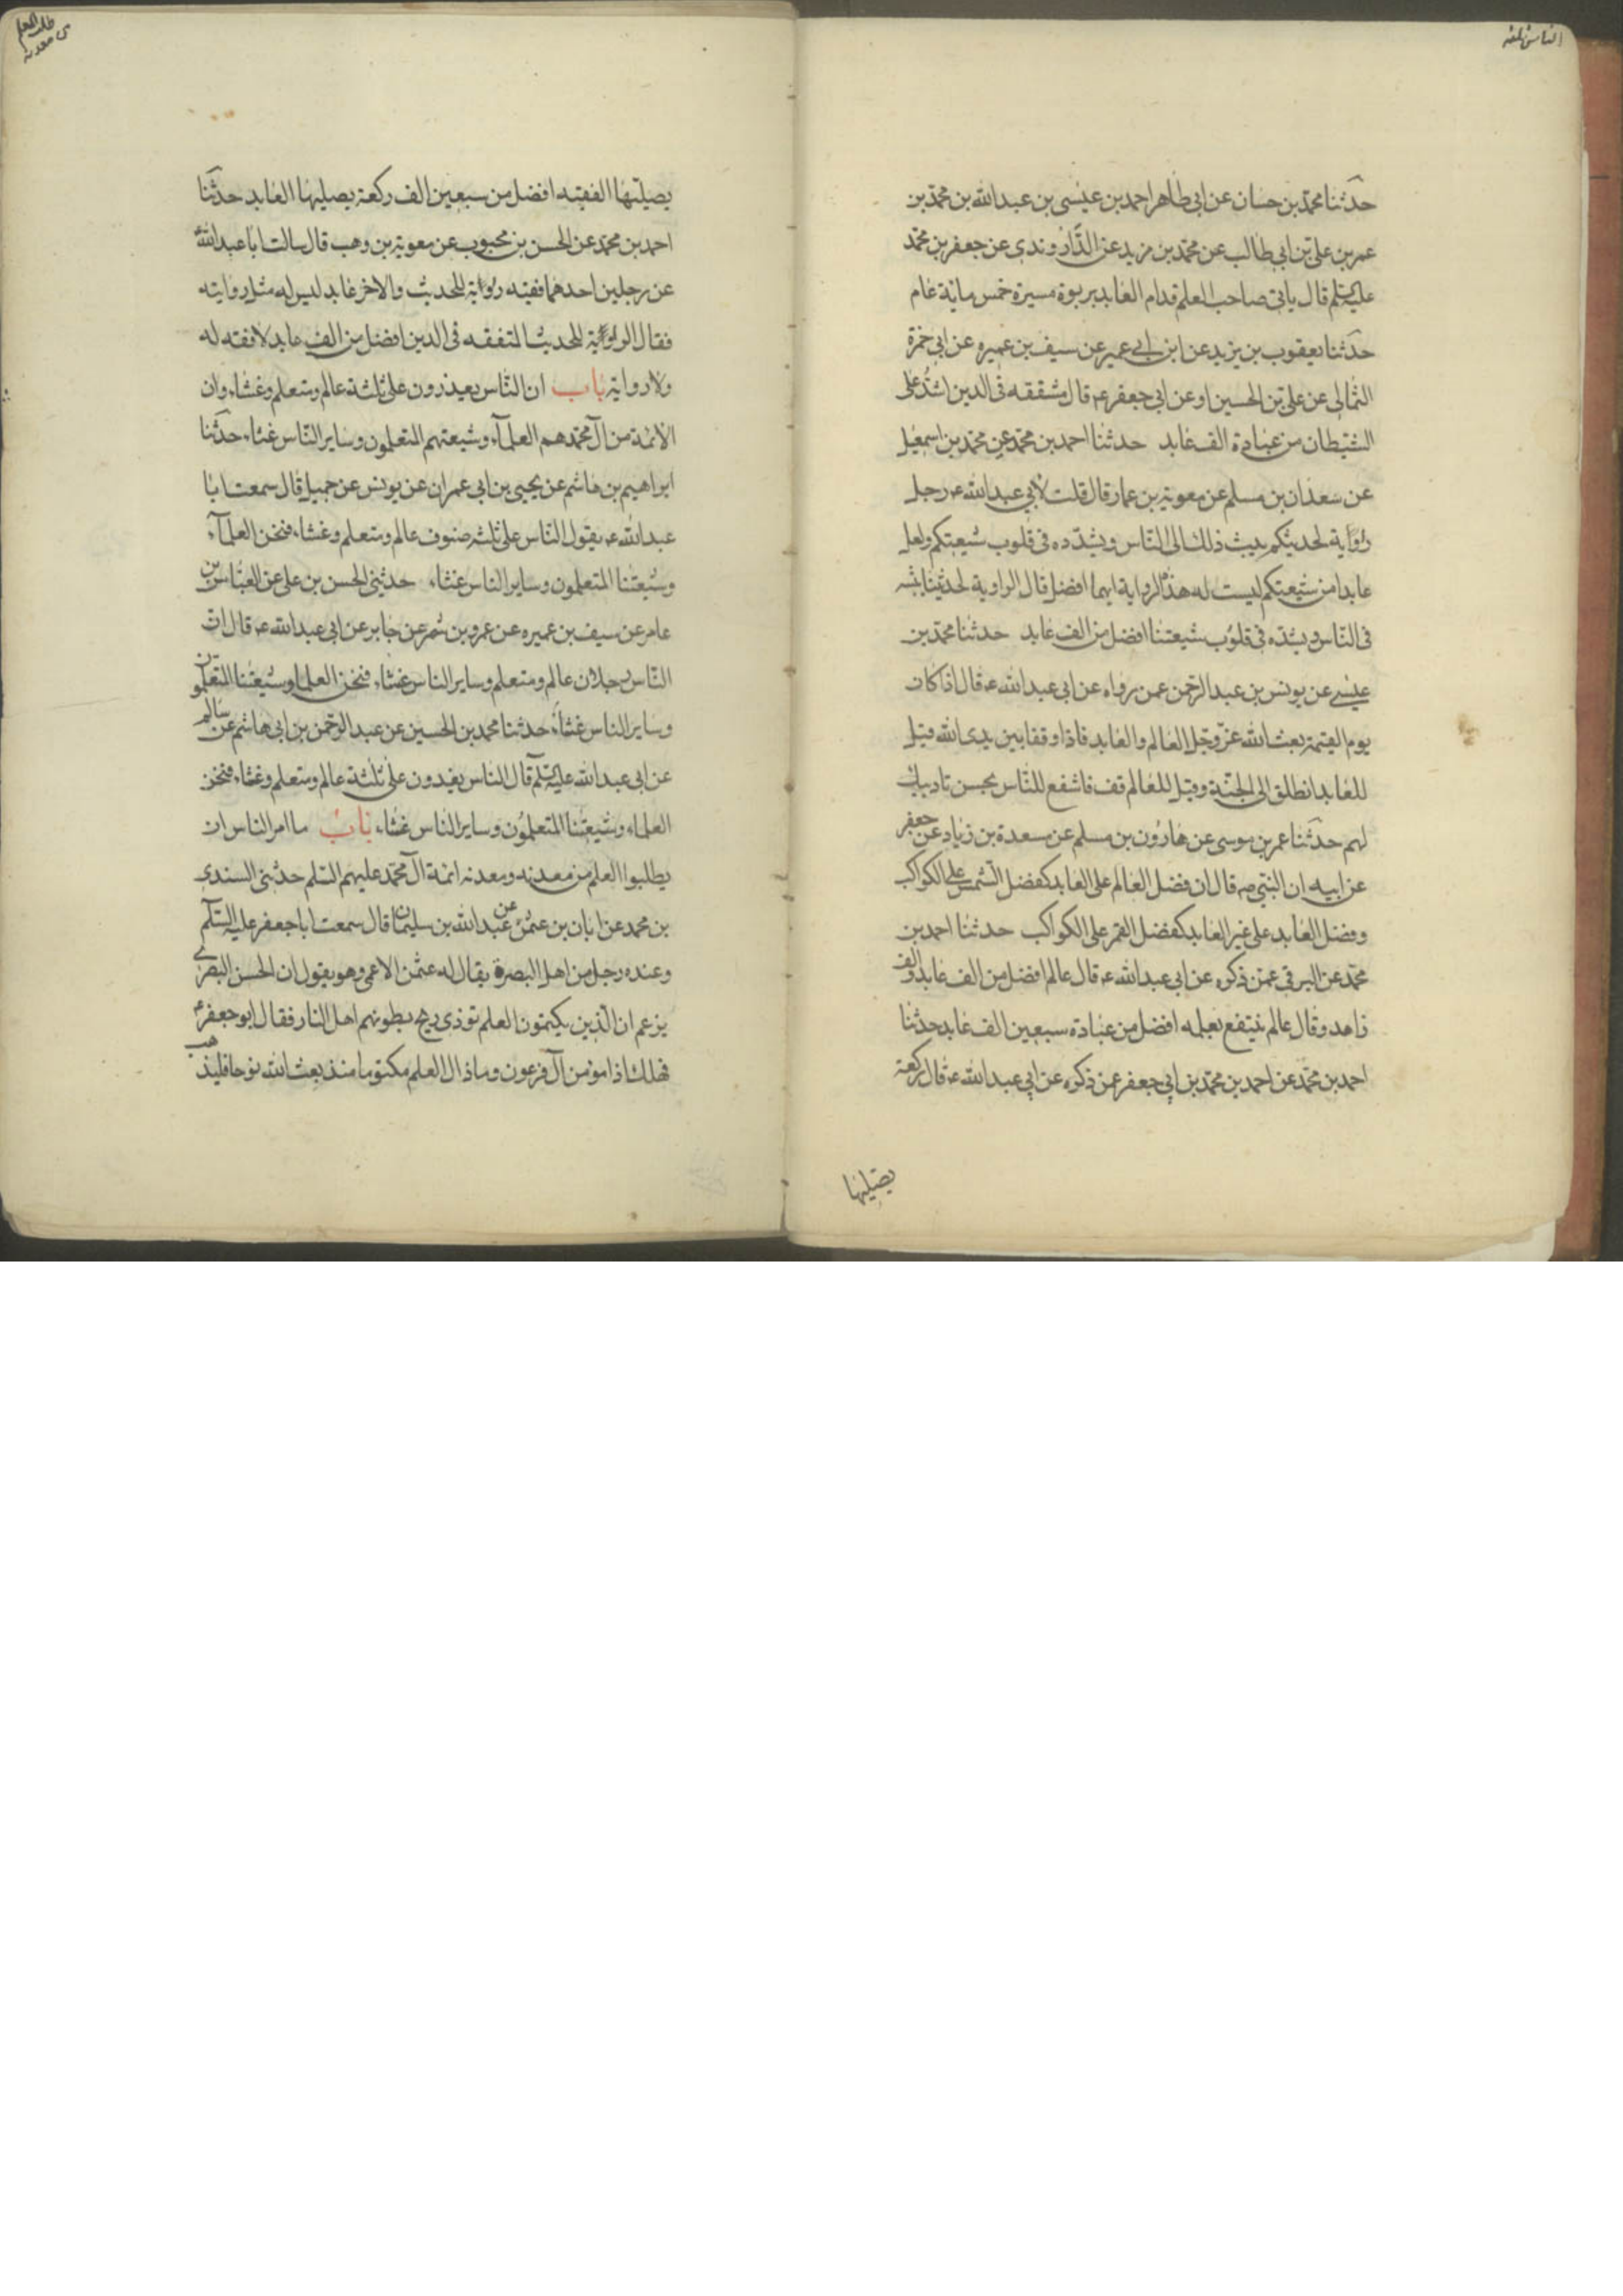 حدثنا محمد بن حسان عن ابى طاهر احمد بن عيسى بن عبد الله بن محمد بن
عمر بن على بن ابى طالب عن محمد بن مزيد عن الداروندى عن جعفر بن محمد
عليه السلم قال ياتى صاحب العلم قدام العابد بربوة مسيرة خمس ماية عام
حدثنا يعقوب بن يزيد عن ابن ابى عمير عن سيف بن عميره عن ابى حمزة
الثمالى عن على بن الحسين او عن ابى جعفر ع قال متفقه فى الدين اشد على
الشيطان من عبادة الف عابد حدثنا احمد بن محمد عن محمد بن اسمعيل
عن سعدان بن مسلم عن معوية بن عمار قال قلت لابى عبد الله ع رجل
رواية لحديثكم يبث ذلك الى الناس ويشدده فى قلوب شيعتكم ولعل
عابدا من شيعتكم ليست له هذه الرواية ايهما افضل قال الراوية لحديثنا يبثه
فى الناس ويشده فى قلوب شيعتنا افضل من الف عابد حدثنا محمد بن
عيسى عن يونس بن عبد الرحمن عمن رواه عن ابى عبد الله ع قال اذا كان
يوم القيمة بعث الله عز وجل العالم والعابد فاذا وقفا بين يدى الله قيل
للعابد انطلق الى الجنة وقيل للعالم قف فاشفع للناس بحسن تاديبك
لهم حدثنا عمر بن موسى عن هارون بن مسلم عن مسعدة بن زياد عن جعفر
عن ابيه ان النبى ص قال ان فضل العالم على العابد كفضل الشمس على الكواكب
وفضل العابد على غير العابد كفضل القمر على الكواكب حدثنا احمد بن
محمد عن البرقى عمن ذكره عن ابى عبد الله ع قال عالم افضل من الف عابد والف
زاهد وقال عالم ينتفع بعلمه افضل من عبادة سبعين الف عابد حدثنا
احمد بن محمد عن احمد بن محمد بن ابى جعفر عمن ذكره عن ابى عبد الله ع قال ركعة
يصليها
يصليها الفقيه افضل من سبعين الف ركعة يصليها العابد حدثنا
احمد بن محمد عن الحسن بن محبوب عن معوية بن وهب قال سالت ابا عبد الله ع
عن رجلين احدهما فقيه رواية للحديث والاخر عابد ليس له مثل روايته
فقال الرواية للحديث المتفقه فى الدين افضل من الف عابد لا فقه له
ولا رواية باب ان الناس يعذرون على ثلثة عالم ومتعلم وغثاء وان
الائمة من آل محمد هم العلمآء وشيعتهم المتعلمون وساير الناس غثاء حدثنا
ابراهيم بن هاشم عن يحيى بن ابى عمران عن يونس عن جميل قال سمعت ابا
عبد الله ع يقول الناس على ثلثه صنوف عالم ومتعلم وغثاء فنحن العلمآء
وشيعتنا المتعلمون وساير الناس غثاء حدثنى الحسن بن على عن العباس بن
عامر عن سيف بن عميره عن عمرو بن شمر عن جابر عن ابى عبد الله ع قال ان
الناس رجلان عالم ومتعلم وساير الناس غثاء فنحن العلما وشيعتنا المتعلمون
وساير الناس غثاء حدثنا محمد بن الحسين عن عبد الرحمن بن ابى هاشم عن سالم
عن ابى عبد الله عليه السلم قال الناس يغدون على ثلثة عالم ومتعلم وغثاء فنحن
العلماء وشيعتنا المتعلمون وساير الناس غثاء باب ما امر الناس ان
يطلبوا العلم من معدنه ومعدنه ائمة آل محمد عليهم السلم حدثنى السندى
بن محمد عن ابان بن عثمن عن عبد الله بن سليمان قال سمعت ابا جعفر عليه السلم
وعنده رجل من اهل البصرة يقال له عثمن الاعمى وهو يقول ان الحسن البصرى
يزعم ان الذين يكتمون العلم توذى ريح بطونهم اهل النار فقال ابو جعفر ع
فهلك اذا مومن آل فرعون وما زال العلم مكتوما منذ بعث الله نوحا فليذهب
طلب العلم
من معدنه